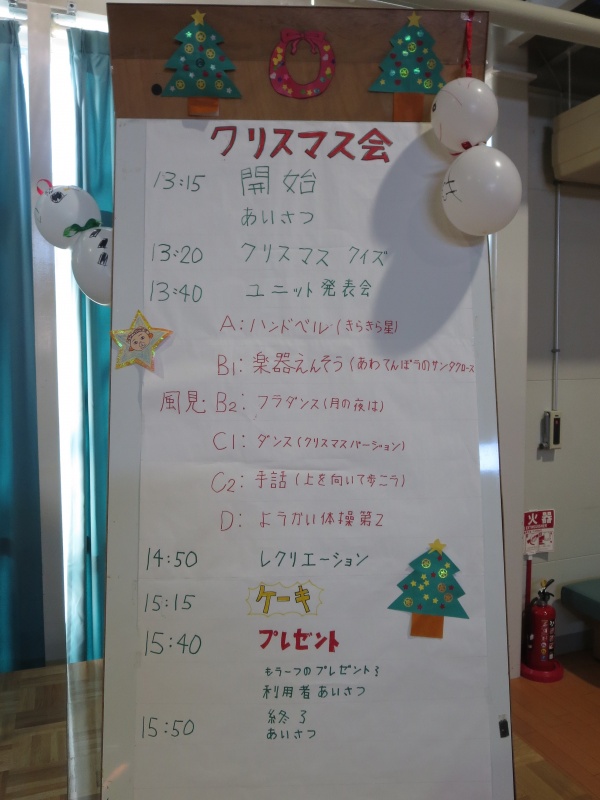 クリスマス会
13:15 開始
あいさつ
13:20 クリスマス クイズ
13:40 ユニット発表会
A: ハンドベル(きらきら星)
B1: 楽器えんそう(あわてんぼうのサンタクロース
風見・B2: フラダンス(月の夜は)
C1: ダンス(クリスマスバージョン)
C2: 手話(上を向いて歩こう)
D: ようかい体操第2
14:50 レクリエーション
15:15 ケーキ
15:40 プレゼント
もう一つのプレゼント
利用者あいさつ
15:50 終了
あいさつ
火器